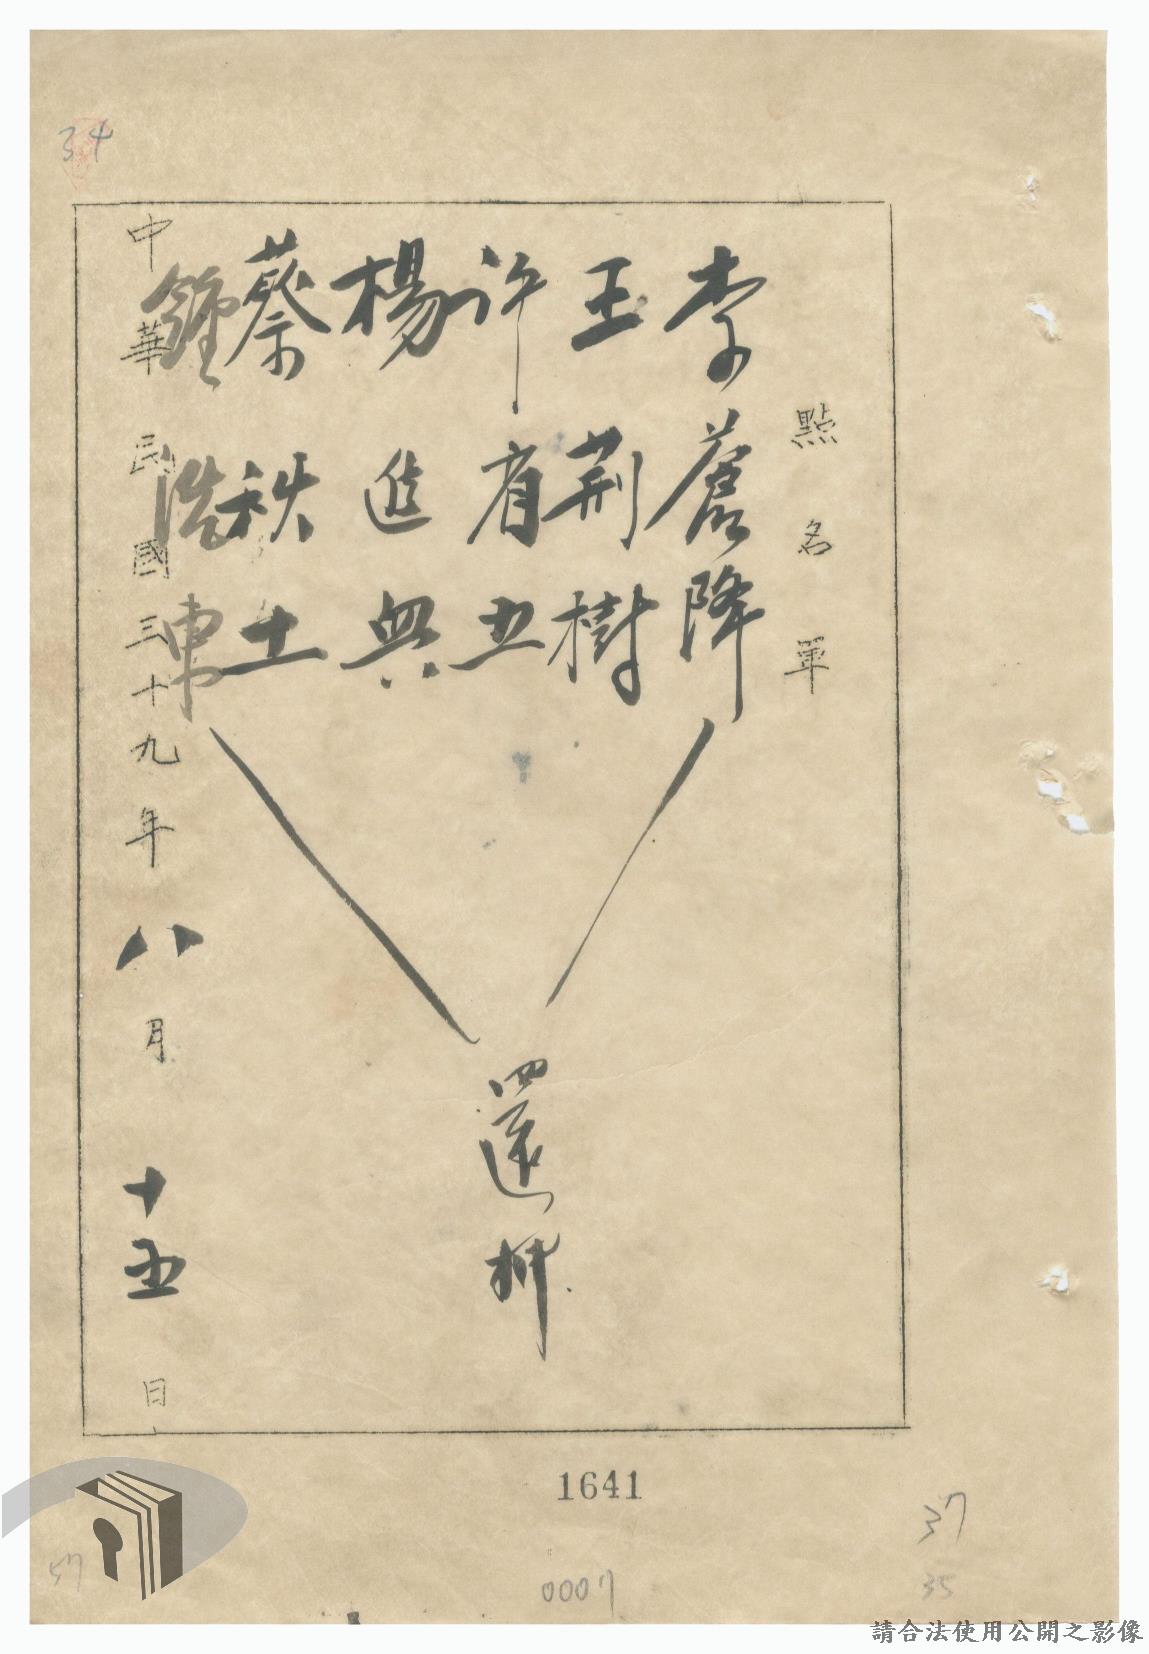 點名單
李蒼降
王荊樹
许省五
楊進興
蔡秩土
鍾浩東
還押
中華民國三十九年八月十五日
34
1641
37
35
57
0007
請合法使用公開之影像